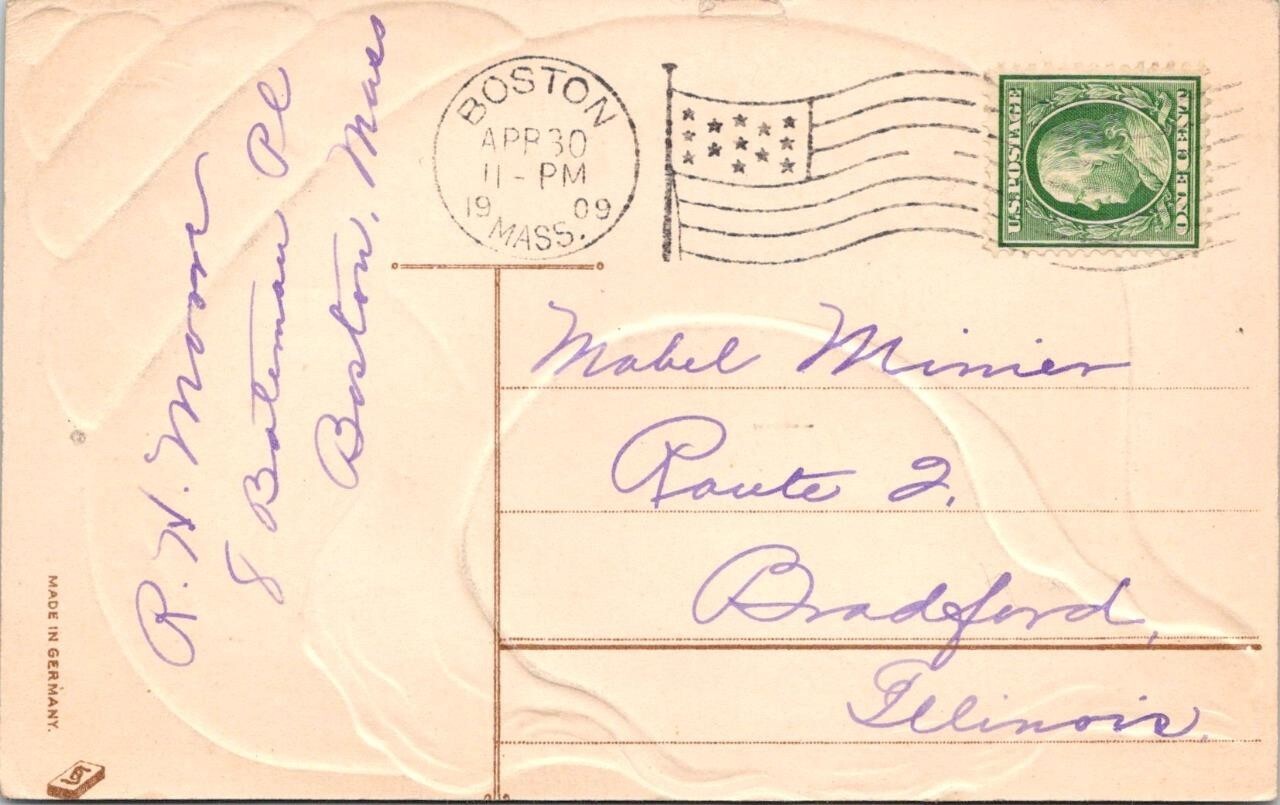 R. H. Moore
8 Bateman Pl
Boston, Mass
BOSTON
APR 30
11 - PM
1909
MASS.
U.S. POSTAGE
ONE CENT
Mabel Minier
Route 2.
Bradford,
Illinois.
MADE IN GERMANY.